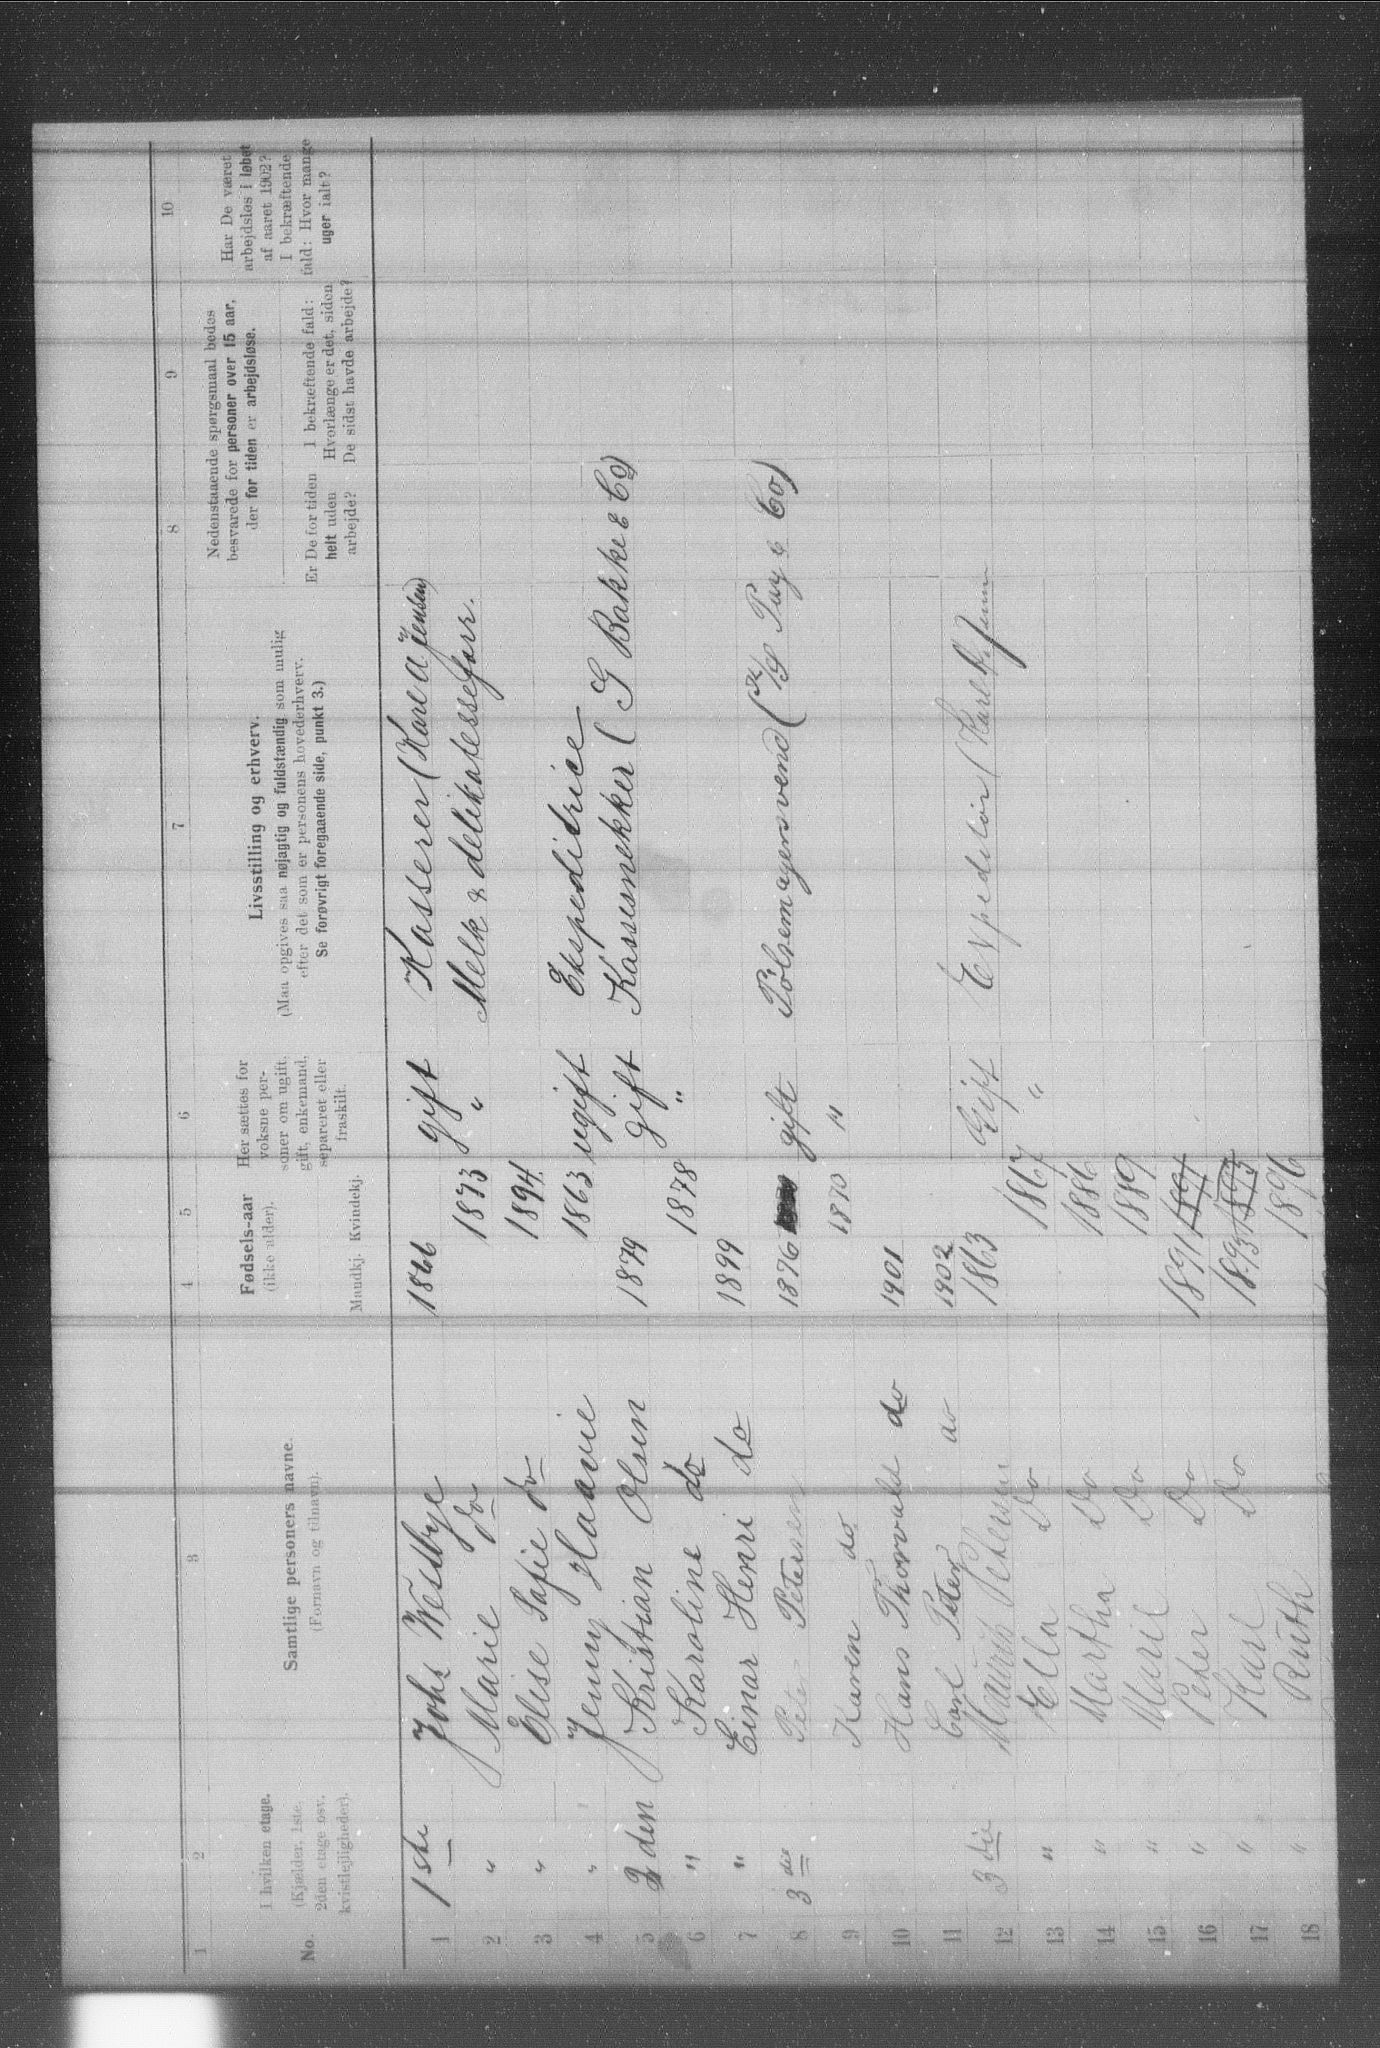 1 2 3 4 5 6 7 8 9 10
No.
I hvilken etage.
(Kjælder, 1ste, 2den etage osv. kvistlejligheder).
Samtlige personers navne.
(Fornavn og tilnavn).
Fødsels-aar
(ikke alder).
Mandkj. Kvindekj.
Her sættes for voksne personer om ugift, gift, enkemand, separeret eller fraskilt.
Livsstilling og erhverv.
(Maa opgives saa nøjagtig og fuldstændig som mulig
efter det som er personens hovederhverv.
Se forøvrigt foregaaende side, punkt 3.)
Nedenstaaende spørgsmaal bedes
besvarede for personer over 15 aar,
der for tiden er arbejdsløse.
Er De for tiden helt uden arbejde?
I bekræftende fald: Hvorlænge er det, siden De sidst havde arbejde?
Har De været arbejdsløs i løbet af aaret 1902? I bekræftende fald: Hvor mange uger ialt?
1 1ste Johs Westbye 1866 gift Kasserer (Kare A Jensen)
2 " Marie do 1873 " Melk & delikatesseforr.
3 " Elise Sofie do 1894
4 " Jenny Haavie 1863 ugift Ekspeditrice
5 2den Kristian Olsen 1879 gift Kassesnekker (G Bakke & Co)
6 " Karoline do 1878 "
7 " Einar Henri do 1899
8 3die Peter Petersen 1876 gift Pølsemagersvend ( & Co)
9 Karen do 1870 "
10 Hans Thorvald do 1901
11 Carl Peter do 1902
12 3die Petersen 1863 Gift Expeditør (Karl
13 " Ella Do 1867 "
14 " Martha Do 1886
15 " Marie Do 1889
16 " Peter Do 1891 1891
17 " Karl Do 1893 1893
18 " Ruth 1896